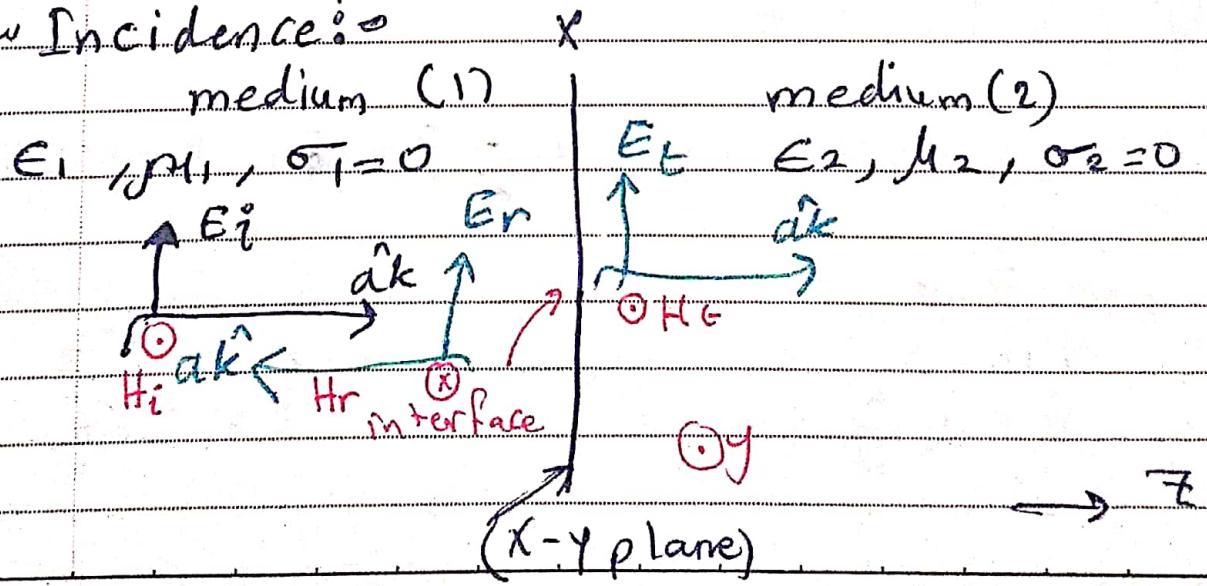 Incidence:-
X
medium (1)
medium (2)
ϵ1, μ1, σ1=0
Et
ϵ2, μ2, σ2=0
Ei
Er
âk
âk
Ht
âk
Hi
Hr
interface
y
z
(X-Y plane)